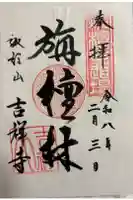 奉拝
令和八年
二月三日
旃檀林
諏訪山
吉祥寺